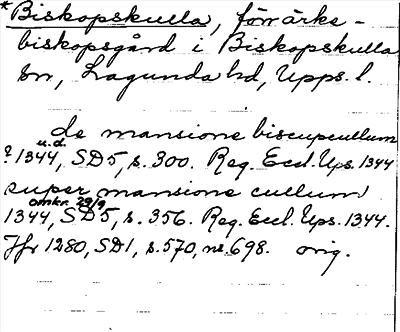 *Biskopskulla, förr ärke-
biskopsgård i Biskopskulla
sn, Lagunda hd, Upps. l.
de mansione biscupcullum
u.d.
? 1344, SD5, s. 300. Reg. Eccl. Ups. 1344
super mansione cullum
omkr. 29/9
1344, SD5, s. 356. Reg. Eccl. Ups. 1344.
Jfr 1280, SD1, s. 570, nr. 698. orig.